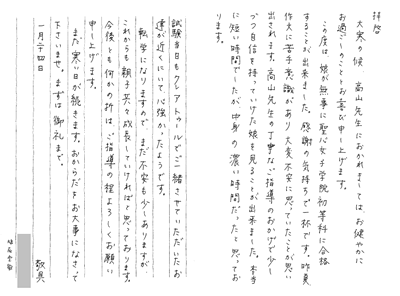 拝啓
大寒の候 高山先生におかれましてはお健やかに
お過ごしのこととお喜び申し上げます。
この度は、娘が無事に聖心女子学院初等科に合格
することが出来ました。感謝の気持ちで一杯です。昨夏
作文に苦手意識があり大変不安に思っていたことが思い
出されます。高山先生の丁寧なご指導のおかげで少し
づつ自信を持っていけた娘を見ることが出来ました。本当
に短い時間でしたが中身の濃い時間だったと思ってお
ります。
試験当日もクレアトゥールでご一緒させていただいたお
達が近くにいて心強かったようです。
転学になりますので、まだ不安も少しありますが
これからも親子共々成長していければと思っております。
今後とも何かの折は、ご指導の程よろしくお願い
申し上げます。
まだ寒い日が続きます。おからだをお大事になさって
下さいませ。まずは御礼まで。
敬具
一月二十四日